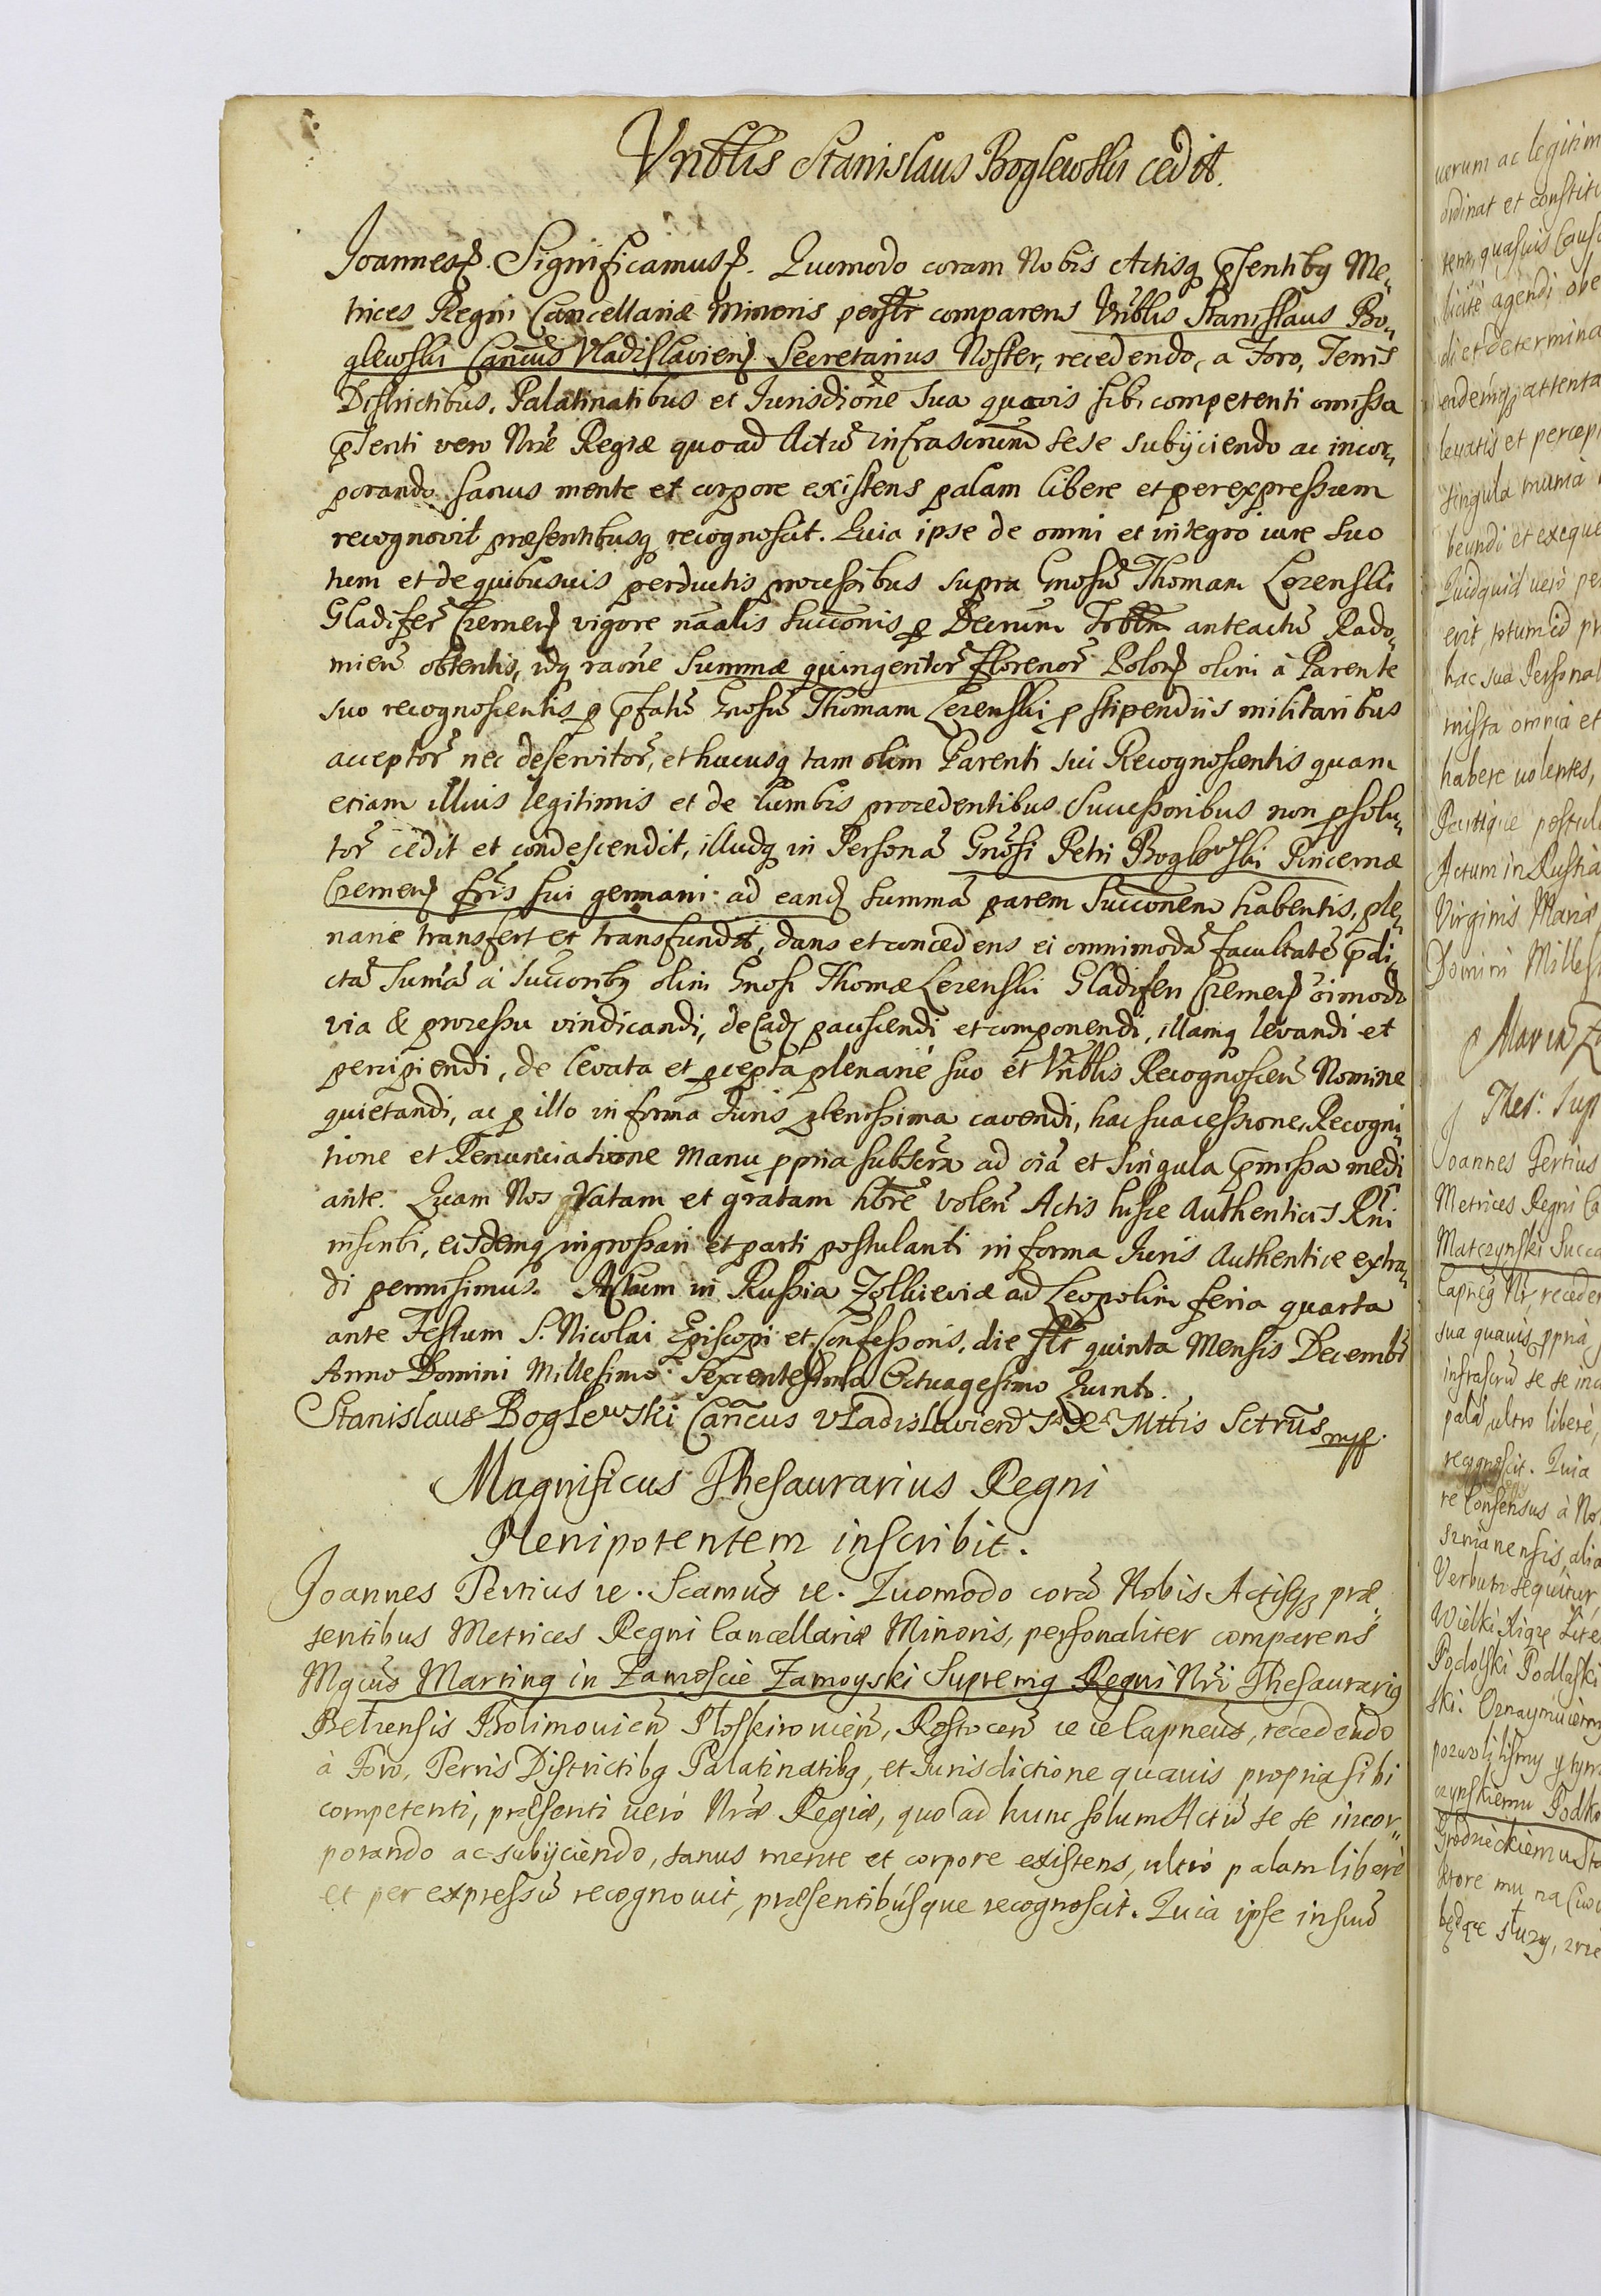 Vnblis Stanislaus Boglewski cedit.
Joannes etc. Significamus etc. Quomodo coram Nobis Actisq pSentibq Me,
trices Regni Cancellariæ Minoris persltr comparens Vnblis Stanislaus Bo,
glewski Cancus Vladislavien Secretarius Noster, recedendo, a Foro, Terris
Districtibus, Palatinatibus et Jurisdione Sua quavis sibi competenti omissa
pSenti vero Nræ Regiæ quo ad Actu infrascrum sese subijciendo ac incor,
porando sanus mente et corpore existens palam libere et per expressum
recognovit præsentibusq recognoscit. Quia ipse de omni et integro iure suo
tum et de quibusuis perductis processibus supra Gnosu Thomam Lezenski
Gladifer Czernen vigore naalis succonis p Decrum Trbtn anteactu Rado,
mien obtentis, idq raone Summæ quingentor florenor Polon olim à Parente
suo recognoscentis p pfatu Gnosu Thomam Lezenski p stipendiis militaribus
acceptor nec deservitor, et hucusq tam olim Parenti sui Recognoscentis quam
etiam illius legitimis et de lumbis procedentibus Successoribus non psolu,
tor cedit et condescendit, illudq in Persona Gnosi Petri Boglewski Pincernæ
Czernen fris sui germani ad eand summa parem Succonem habentis, ple,
narie transfert et transfundit, dans et concedens ei omnimoda facultate pdi,
cta Suma a Succoribq olim Gnosi Thomæ Lezenski Gladiferi Czernen oimoda
via & processu vindicandi, de ead paciscendi et componendi, illamq levandi et
percipiendi, de levata et pcepta plenarie suo et Vnblis Recognoscen Nomine
quietandi, ac p illo in forma Juris plenissima cavendi, hac sua cessione, Recogni,
tione et Renunciatione Manu ppria subscra ad oia et singula pmissa medi
ante. Quam Nos Ratam et gratam hbre volen Actis hisce Authenticis Rni
inscribi, eisdemq ingrossari et parti postulanti in forma Juris Authentice extra,
di permisimus. Actum in Russia Zolkieviæ ad Leopolim feria quarta
ante Festum S. Nicolai Episcopi et Confessoris, die sltr quinta Mensis Decembr
Anno Domini Millesimo Sexcentesimo Octuagesimo Quinto.
Stanislaus Boglewski Cancus Vladislavien S R Mttis Sctrus mpp.
Magnificus Thesaurarius Regni
Plenipotentem inscribit.
Joannes Tertius etc. Scamus etc. Quomodo cora Nobis Actisq præ,
sentibus Metrices Regni Cancellariæ Minoris, personaliter comparens
Mgcus Martinq in Zamoscie Zamoyski Supremq Regni Nri Thesaurariq
Belzensis Bolimouien Ploskirouien, Rostocen etc etc Capneus, recedendo
à Foro, Terris Districtibq Palatinatibq, et Jurisdictione quauis propria sibi
competenti, præsenti uerò Nræ Regiæ, quo ad hunc solum Actu se se incor,
porando ac subijciendo, sanus mente et corpore existens, ultrò palam liberè
et per expressu recognouit, præsentibusque recognoscit. Quia ipse in suu
uerum ac legitim
ordinat et constit
di et determina
leuatis et percep
singula munia
beundi et exeque
Quidquid uerò pe
erit, totum id pr
hac sua Personal
missa omnia et
habere uolentes,
Partique postul
Actum in Russia
Virginis Mariæ
Domini Milles
Joannes Tertius
Metrices Regni Ca
Matczynski Succa
sua quauis ppria
pala ultro liberè,
recognoscit. Quia
re Consensus à No
Verbum sequitur,
Wielki Xiąze Lite
Podolski Podlaski
ski. Oznaymuiem